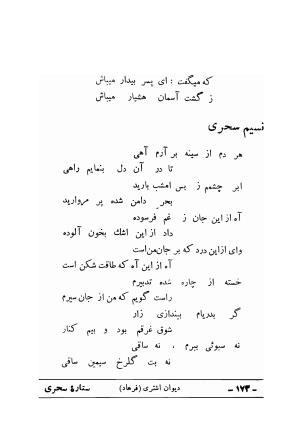 که میگفت : ای پسر بیدار میباش
ز گشت آسمان هشیار میباش
نسیم سحری
هر دم از سینه برآرم آهی
تا در آن دل بنمایم راهی
ابر چشمم ز بس امشب بارید
بحر دامن شده پر مروارید
آه از این جان ز غم فرسوده
داد از این اشك بخون آلوده
وای از این درد که بر جان من است
آه از این آه که طاقت شکن است
خسته از چاره شده تدبیرم
راست گویم که من از جان سیرم
گر بدریام بیندازی زار
شوق غرقم بود و بیم کنار
نه سبوئی ببرم ، نه ساقی
نه بت گلرخ سیمین ساقی
- ۱۷۳ - دیوان اشتری (فرهاد) ستارۀ سحری